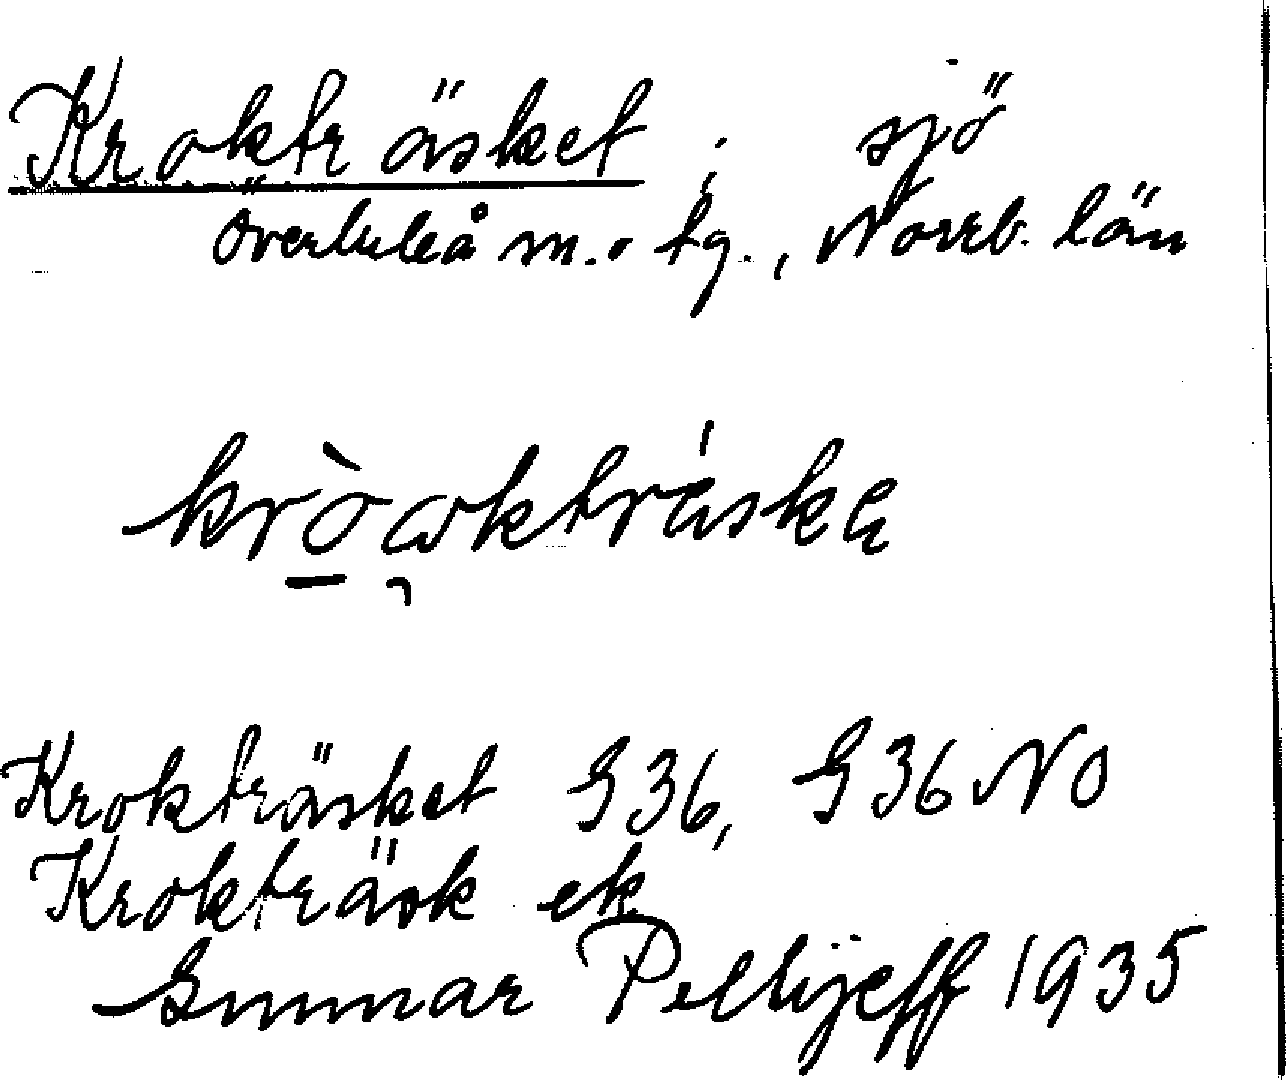 Krokträsket ; sjö
Överluleå sn. o tg., Norrb. län
Krokträsket G36, G36 NO
Krokträsk ek
Gunnar Pellijeff 1935